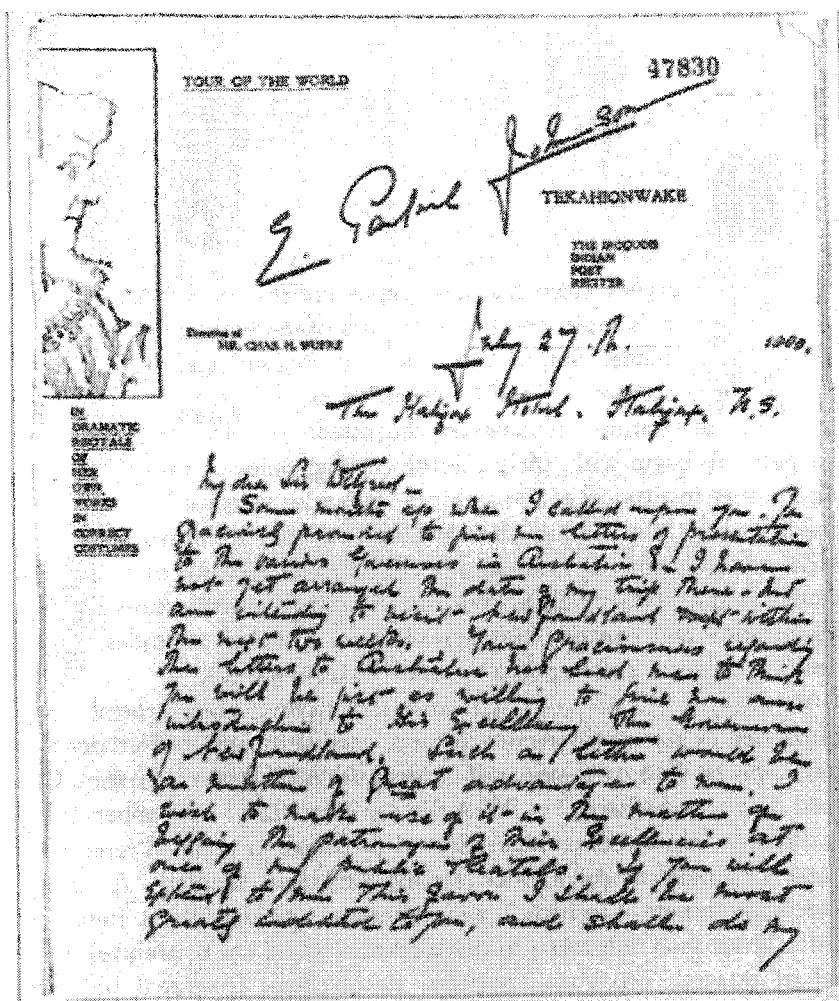 TOUR OF THE WORLD
47830
E. Pauline Johnson
TEKAHIONWAKE
THE IROQUOIS
INDIAN
POET
RECITER
Direction of
MR. CHAS. H. WUERZ
July 27.th. 1900.
The Halifax Hotel. Halifax, N.S.
IN
DRAMATIC
RECITALS
OF
HER
OWN
WORKS
IN
CORRECT
COSTUMES
My dear Sir Wilfred—
Some months ago when I called upon you. You
graciously promised to give me letters of presentation
to the various Governors in Australia &. I have
not yet arranged the date of my trip there— but
am intending to visit Newfoundland within
the next two weeks. Your graciousness regarding
the letters to Australia has lead me to think
you will be just as willing to give me one
introducing me to His Excellency The Governor
of Newfoundland. Such a letter would be
a matter of great advantage to me. I
wish to make use of it in the matter of
begging the patronage of their Excellencies at
one of my public recitals. If you will
extend to me this favor I shall be most
greatly indebted to you, and shall do my